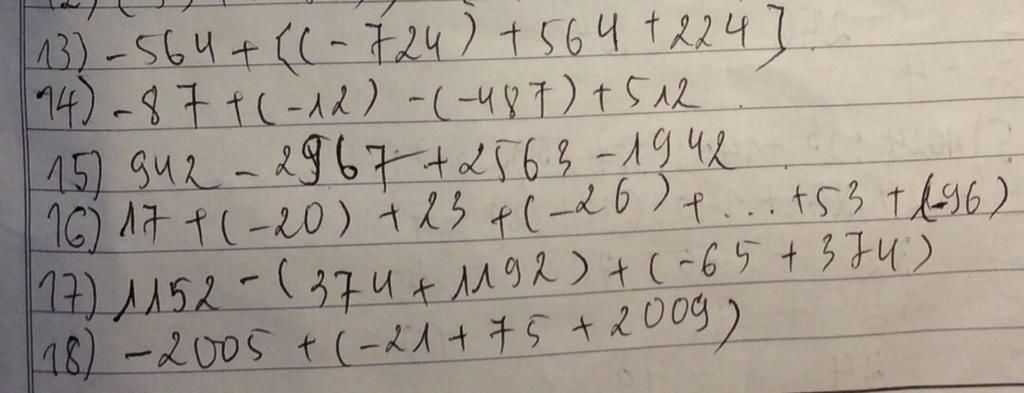 13) -564 + {(-724) + 564 + 224]
14) -87 + (-12) - (-487) + 512
15) 942 - 2967 + 2563 - 1942
16) 17 + (-20) + 23 + (-26) + ... + 53 + (-96)
17) 1152 - (374 + 1192) + (-65 + 374)
18) -2005 + (-21 + 75 + 2009)